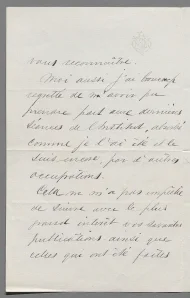 vous reconnaître.
Moi aussi, j'ai beaucoup
regretté de n'avoir pu
prendre part aux dernières
séances de l'Institut,
comme je l'ai été et le
suis encore, par d'autres
occupations.
Cela ne m'a pas empêché
de suivre avec le plus
grand intérêt vos savantes
publications ainsi que
celles qui ont été faites